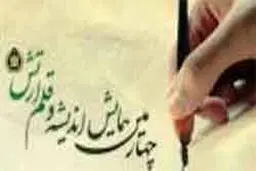 چهارمین همایش اندیشه و قلم ارتش